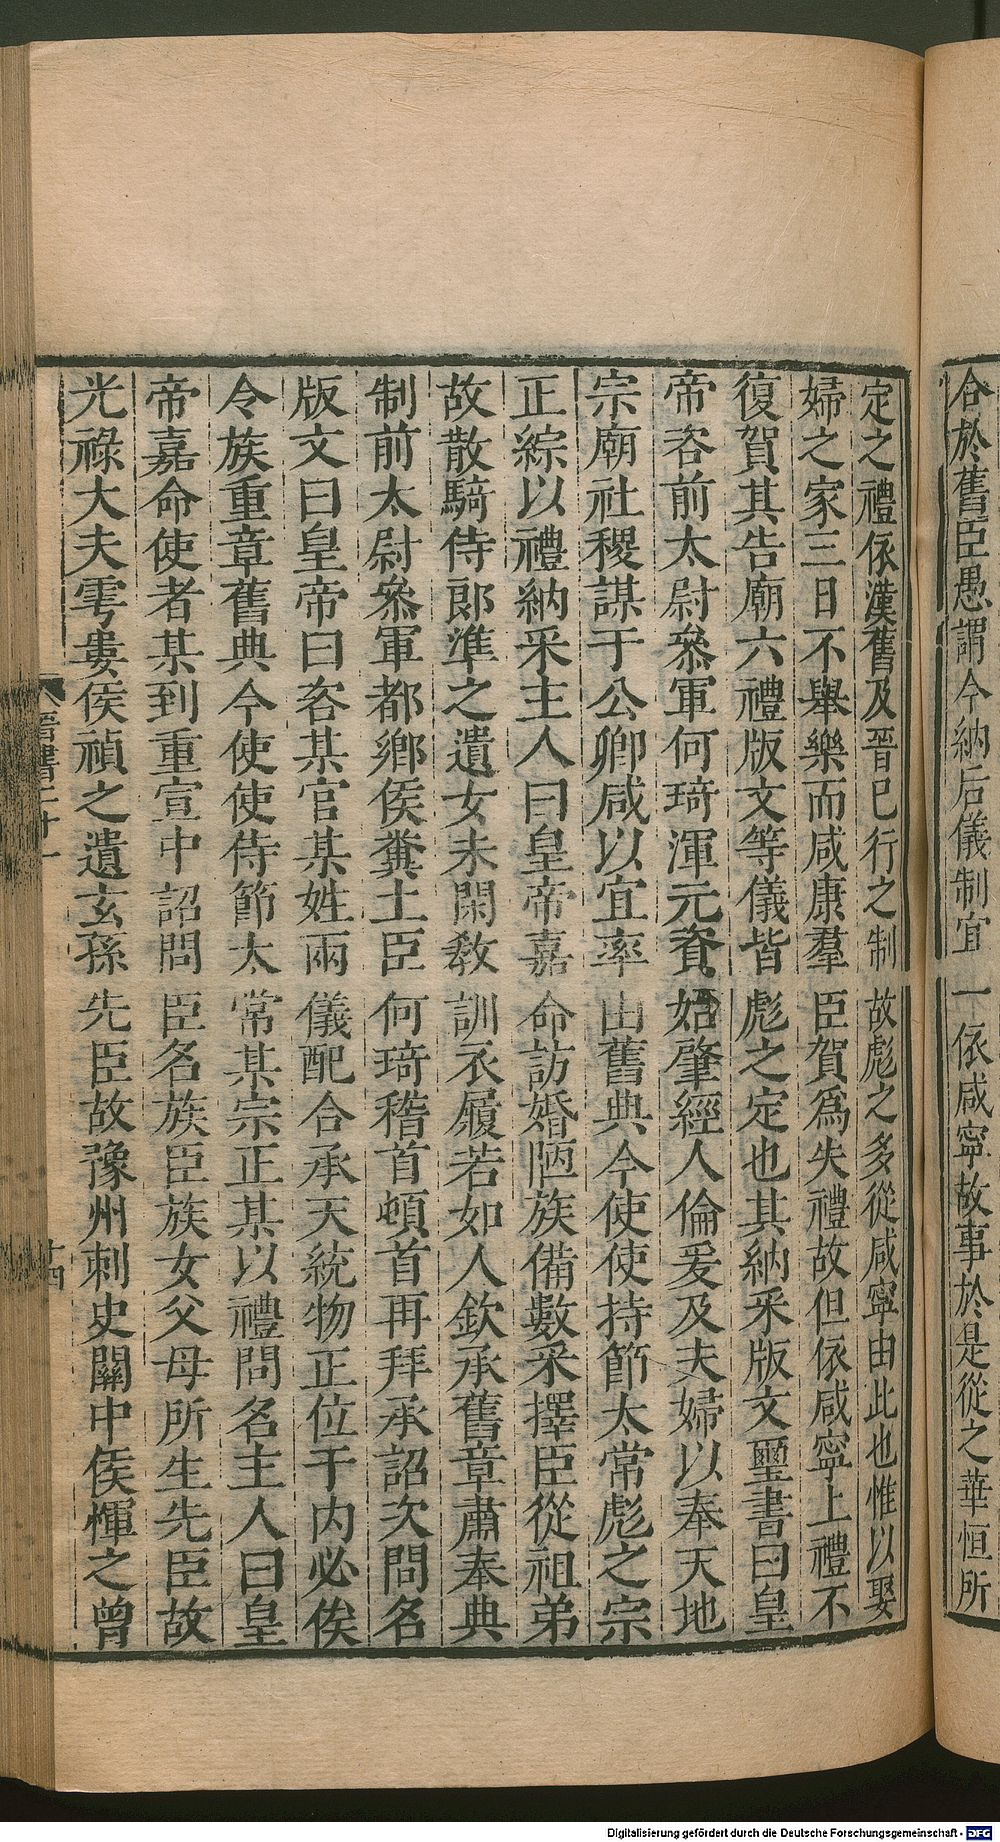 合於舊臣愚謂今納后儀制宜一依咸寧故事於是從之華恒所
定之禮依漢舊及晉已行之制故彪之多從咸寧由此也惟以娶
婦之家三日不舉樂而咸康羣臣賀爲失禮故但依咸寧上禮不
復賀其告廟六禮版文等儀皆彪之定也其納采版文璽書曰皇
帝咨前太尉叅軍何琦渾元資始肇經人倫爰及夫婦以奉天地
宗廟社稷謀于公卿咸以宜率由舊典今使使持節太常彪之宗
正綜以禮納采主人曰皇帝嘉命訪婚陋族備數采擇臣從祖弟
故散騎侍郎準之遺女未閑敎訓衣履若如人欽承舊章肅奉典
制前太尉叅軍都鄉侯糞土臣何琦稽首頓首再拜承詔次問名
版文曰皇帝曰咨某官某姓兩儀配合承天統物正位于内必俟
令族重章舊典今使使侍節太常某宗正某以禮問名主人曰皇
帝嘉命使者某到重宣中詔問臣名族臣族女父母所生先臣故
光祿大夫雩婁侯禎之遺玄孫先臣故豫州刺史關中侯惲之曾
晉書二十一
十四
Digitalisierung gefördert durch die Deutsche Forschungsgemeinschaft - DFG